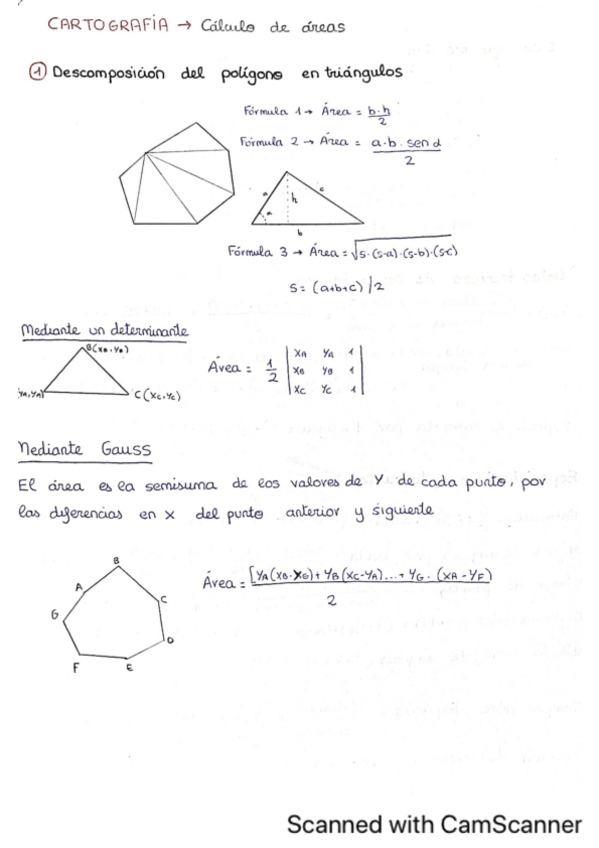 CARTOGRAFÍA → Cálculo de áreas
① Descomposición del polígono en triángulos
Fórmula 1 → Área = b·h / 2
Fórmula 2 → Área = a·b·sen α / 2
a h c
α
b
Fórmula 3 → Área = √s·(s-a)·(s-b)·(s-c)
s = (a+b+c) / 2
Mediante un determinante
B(XB, YB)
Área = 1/2 | XA YA 1
XB YB 1
XC YC 1 |
YA, YA) C(XC, YC)
Mediante Gauss
El área es la semisuma de los valores de Y de cada punto, por
las diferencias en x del punto anterior y siguiente
Área = [YA(XB-XG) + YB(XC-YA)...+ YG·(XA-YF) / 2
B
A
C
G
D
F E
Scanned with CamScanner